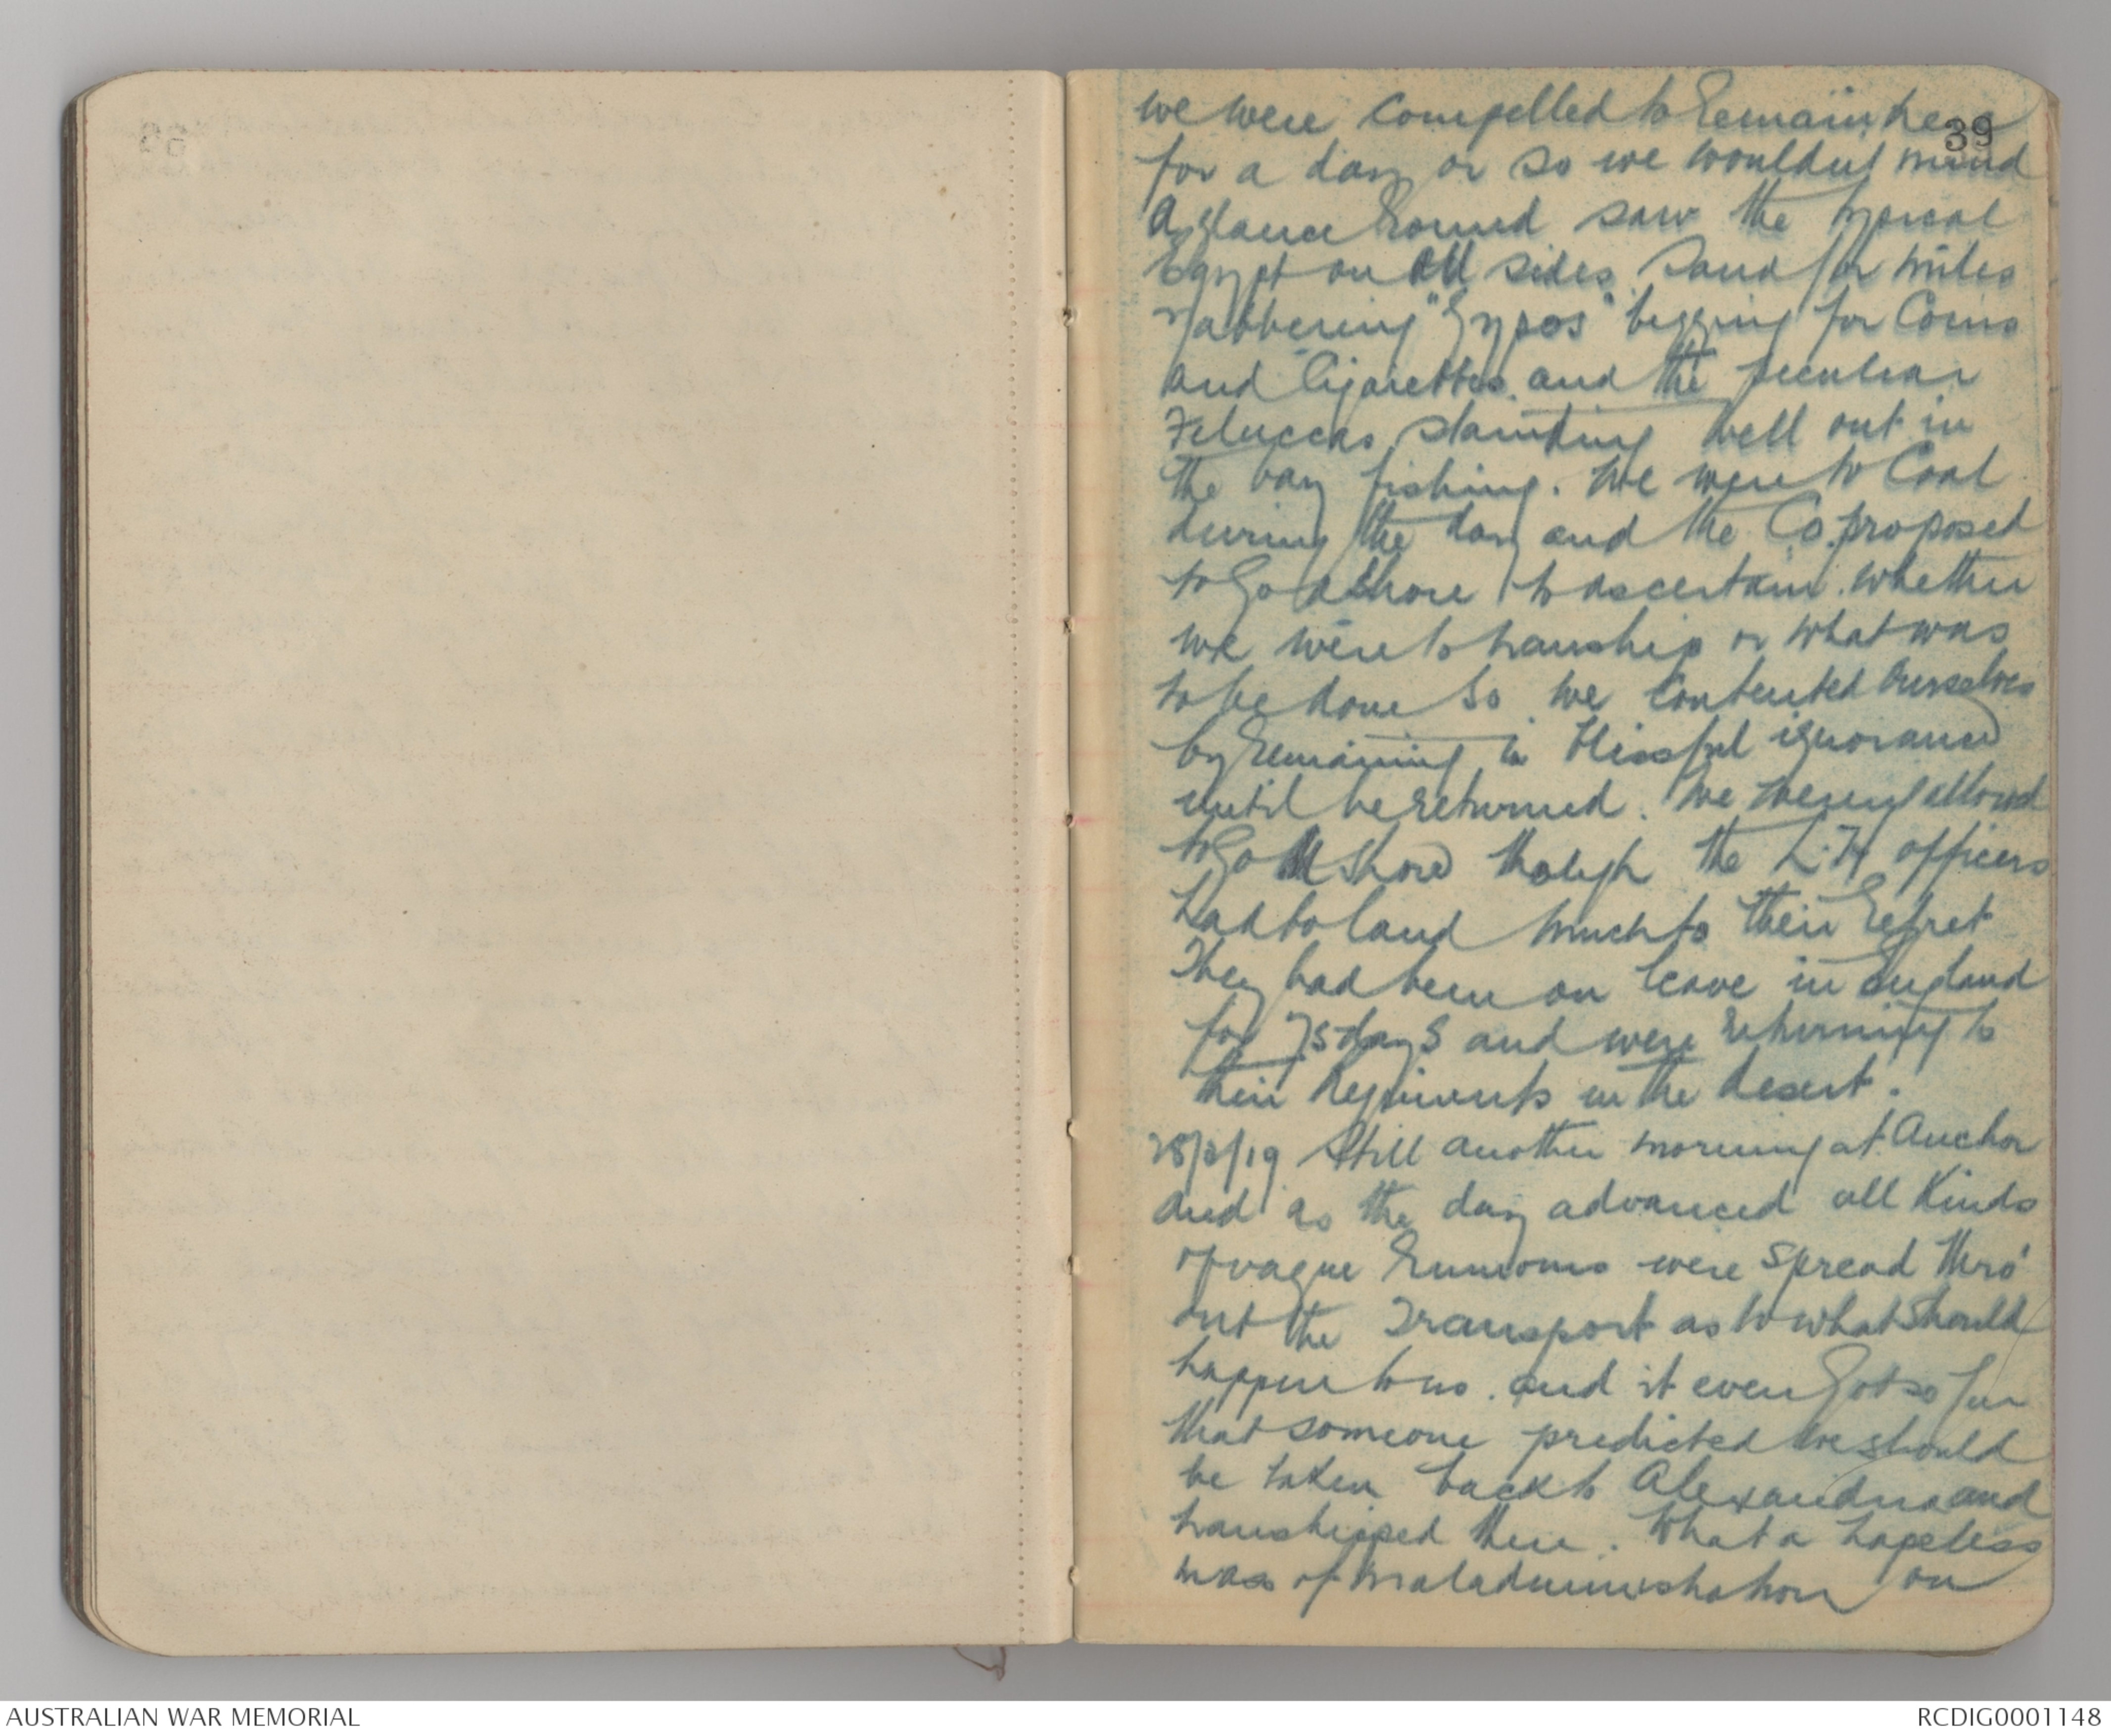 39
we were compelled to remain here
for a day or so we wouldnt mind
A glance round saw the typical
Egypt on all sides. Sand for miles
Jabbering "Gypos" begging for Coins
and Cigarettes. and the peculiar
Feluccas standing well out in
the bay fishing. We were to Coal
during the day and the Co. proposed
to go ashore to ascertain whether
we were to tranship or what was
to be done so we contented ourselves
by remaining in blissful ignorance
until he returned. We allowed
to go shore though the L.H officers
had to land much to their regret
They had been on leave in England
for 75 days and were returning to
their Regiments in the desert.
28/2/19 Still another morning at Anchor
and as the day advanced all Kinds
of vague rumours were spread thro'
out the Transport as to what should
happen to us. and it even got so far
that someone predicted we should
be taken back to Alexandria and
transhipped there. What a hopeless
mass of maladministration on
AUSTRALIAN WAR MEMORIAL
RCDIG0001148